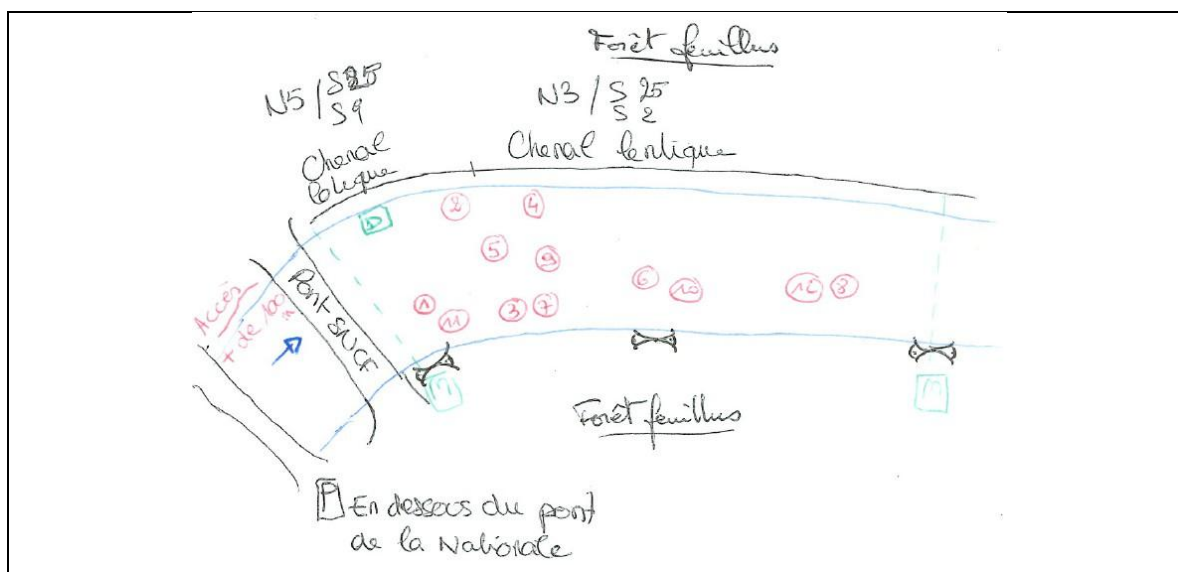 Forêt feuillus
N5 / S25
S9
N3 / S 25
S 2
Chenal
lotique
Chenal lentique
D
2
4
5
9
6
10
12
8
1
11
3
7
Accès
+ de 100 m
Pont SNCF
Forêt feuillus
P En dessous du pont
de la Nationale